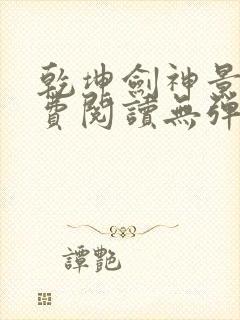 乾坤劍神景
費閱讀無彈
譚艷